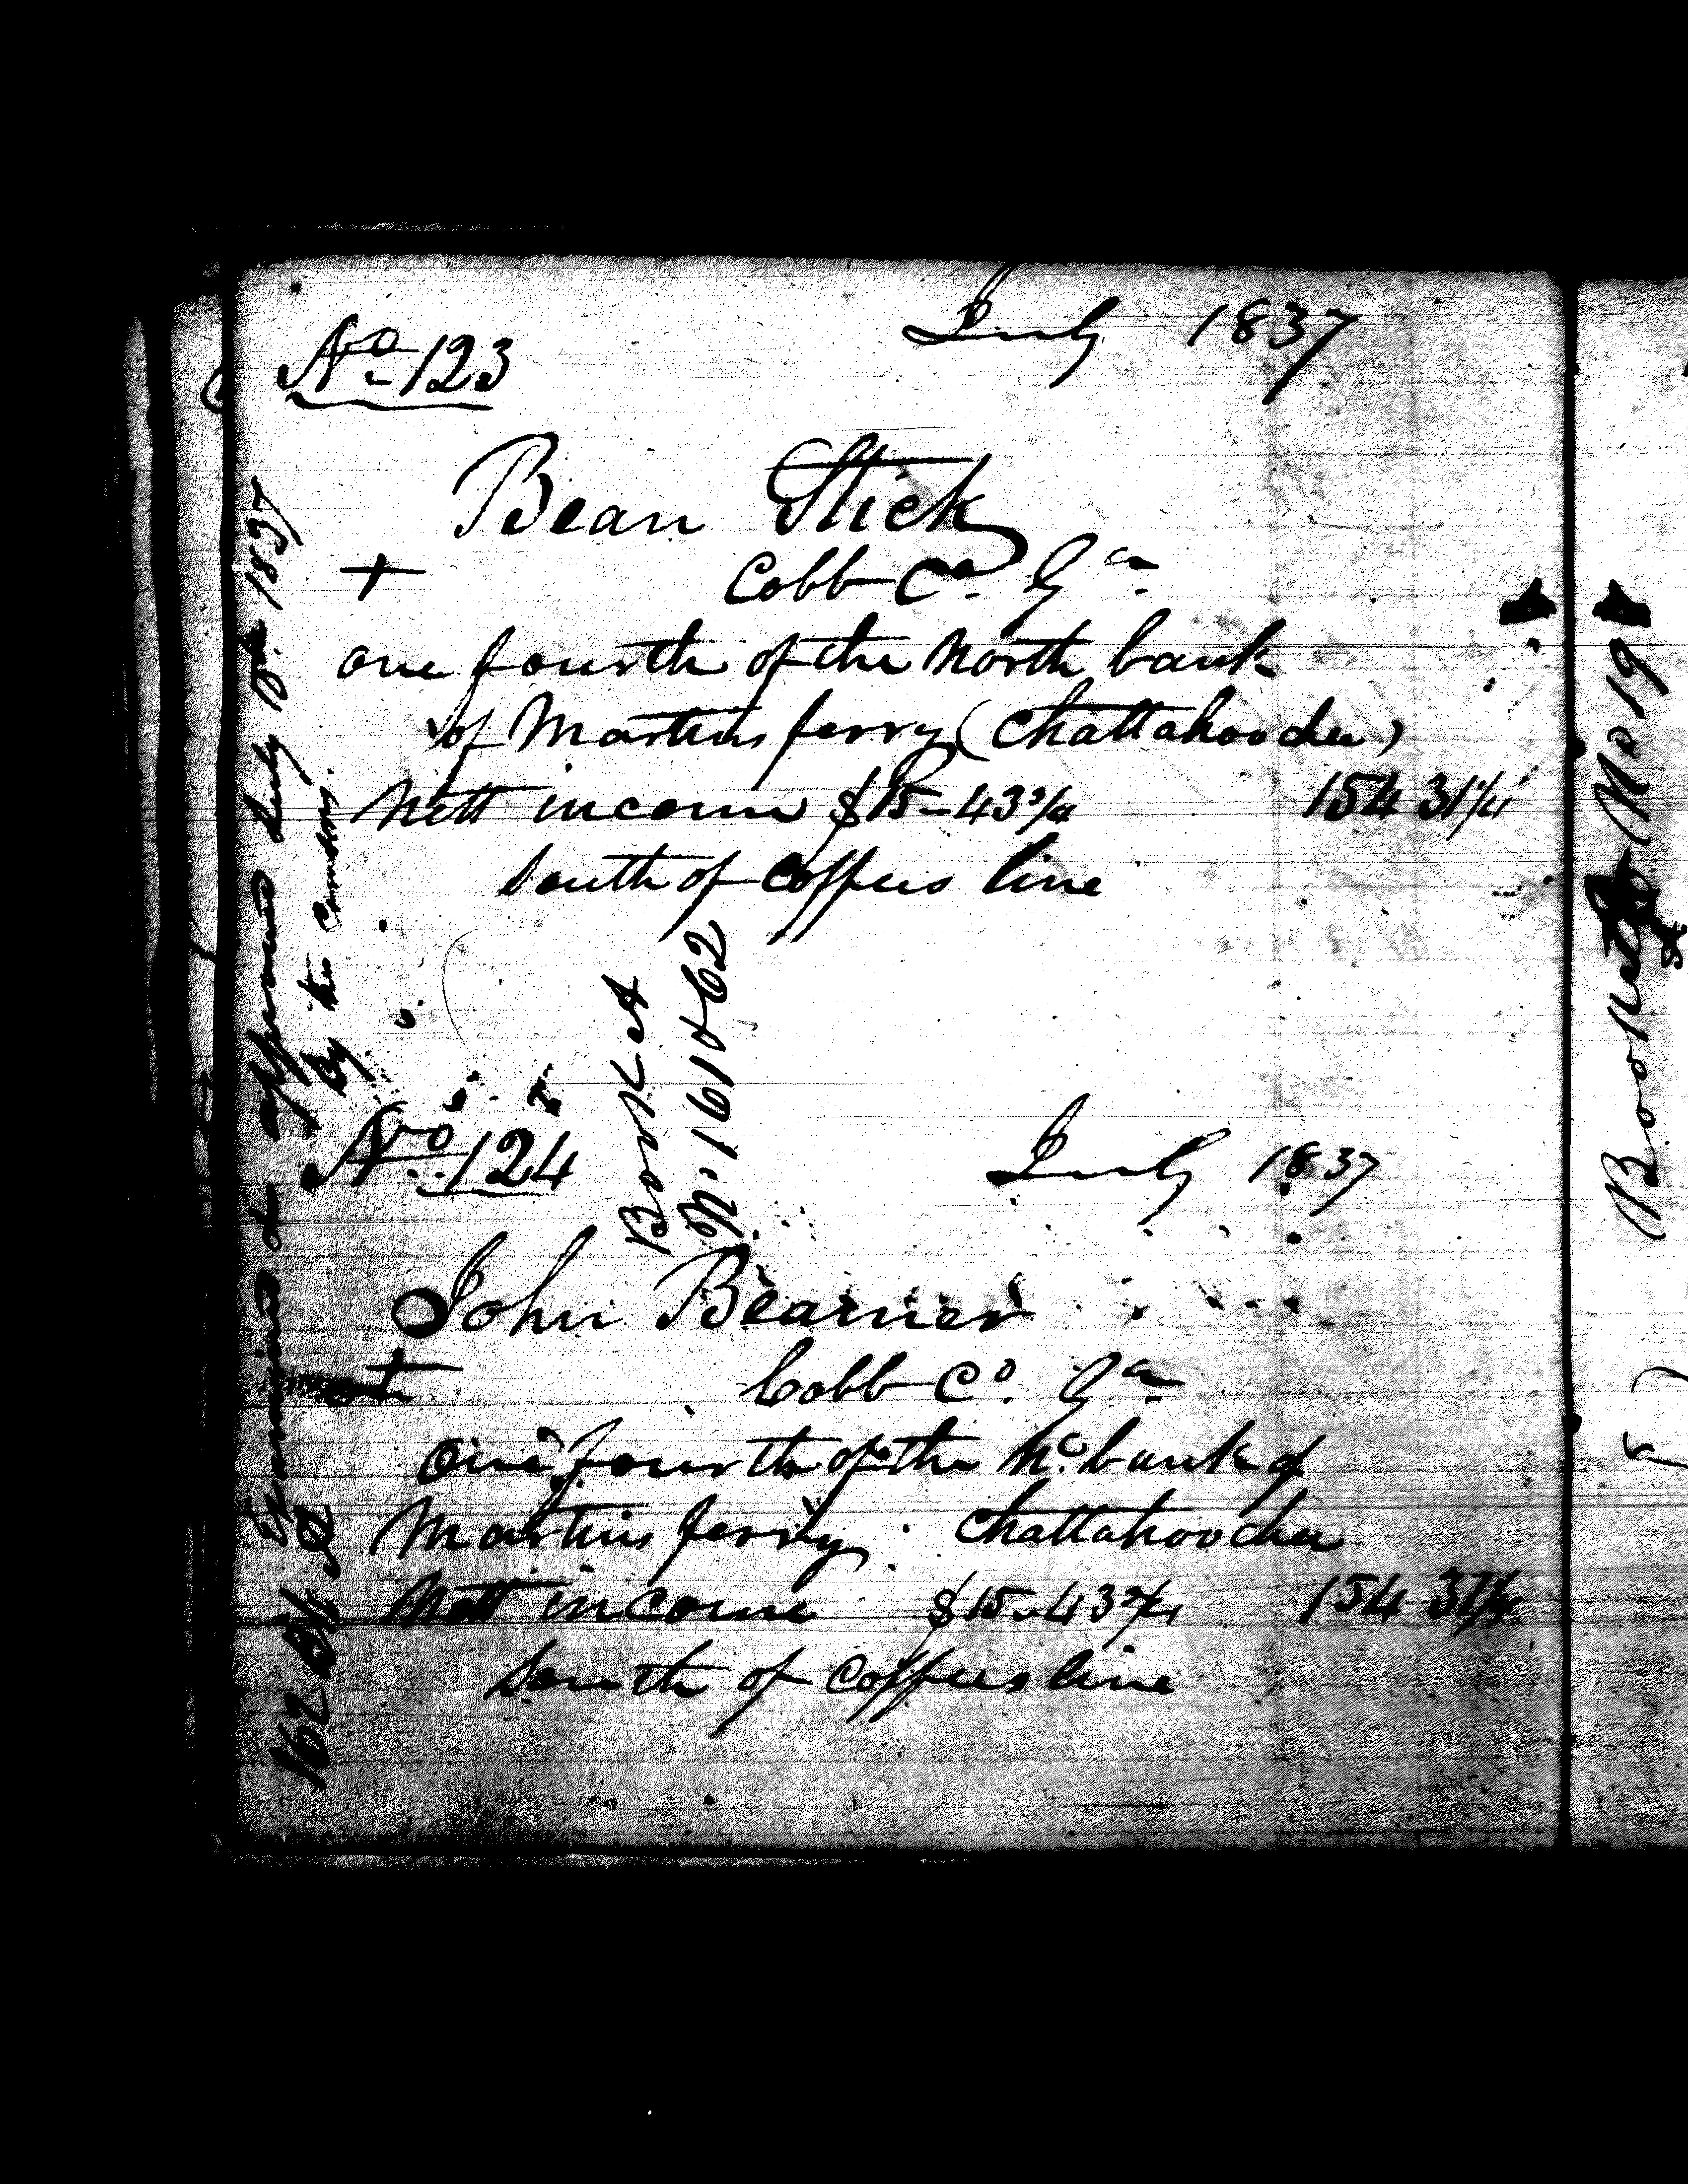 No 123 July 1837
Bean Stick
+ Cobb Co. Ga
one fourth of the North bank
of Martins ferry (Chattahoochee)
Nett income $15-43 3/4 154 31 1/4
South of Coffees line
Book A
No 161 & 62
No. 124 July 1837
John Beamer
+ Cobb Co. Ga
One fourth of the No. bank of
Martins ferry Chattahoochee
Nett income $15-43 3/4 154 31 1/4
South of Coffees line
Examined & approved July 1837
By the
162 Bk A
Book No 19